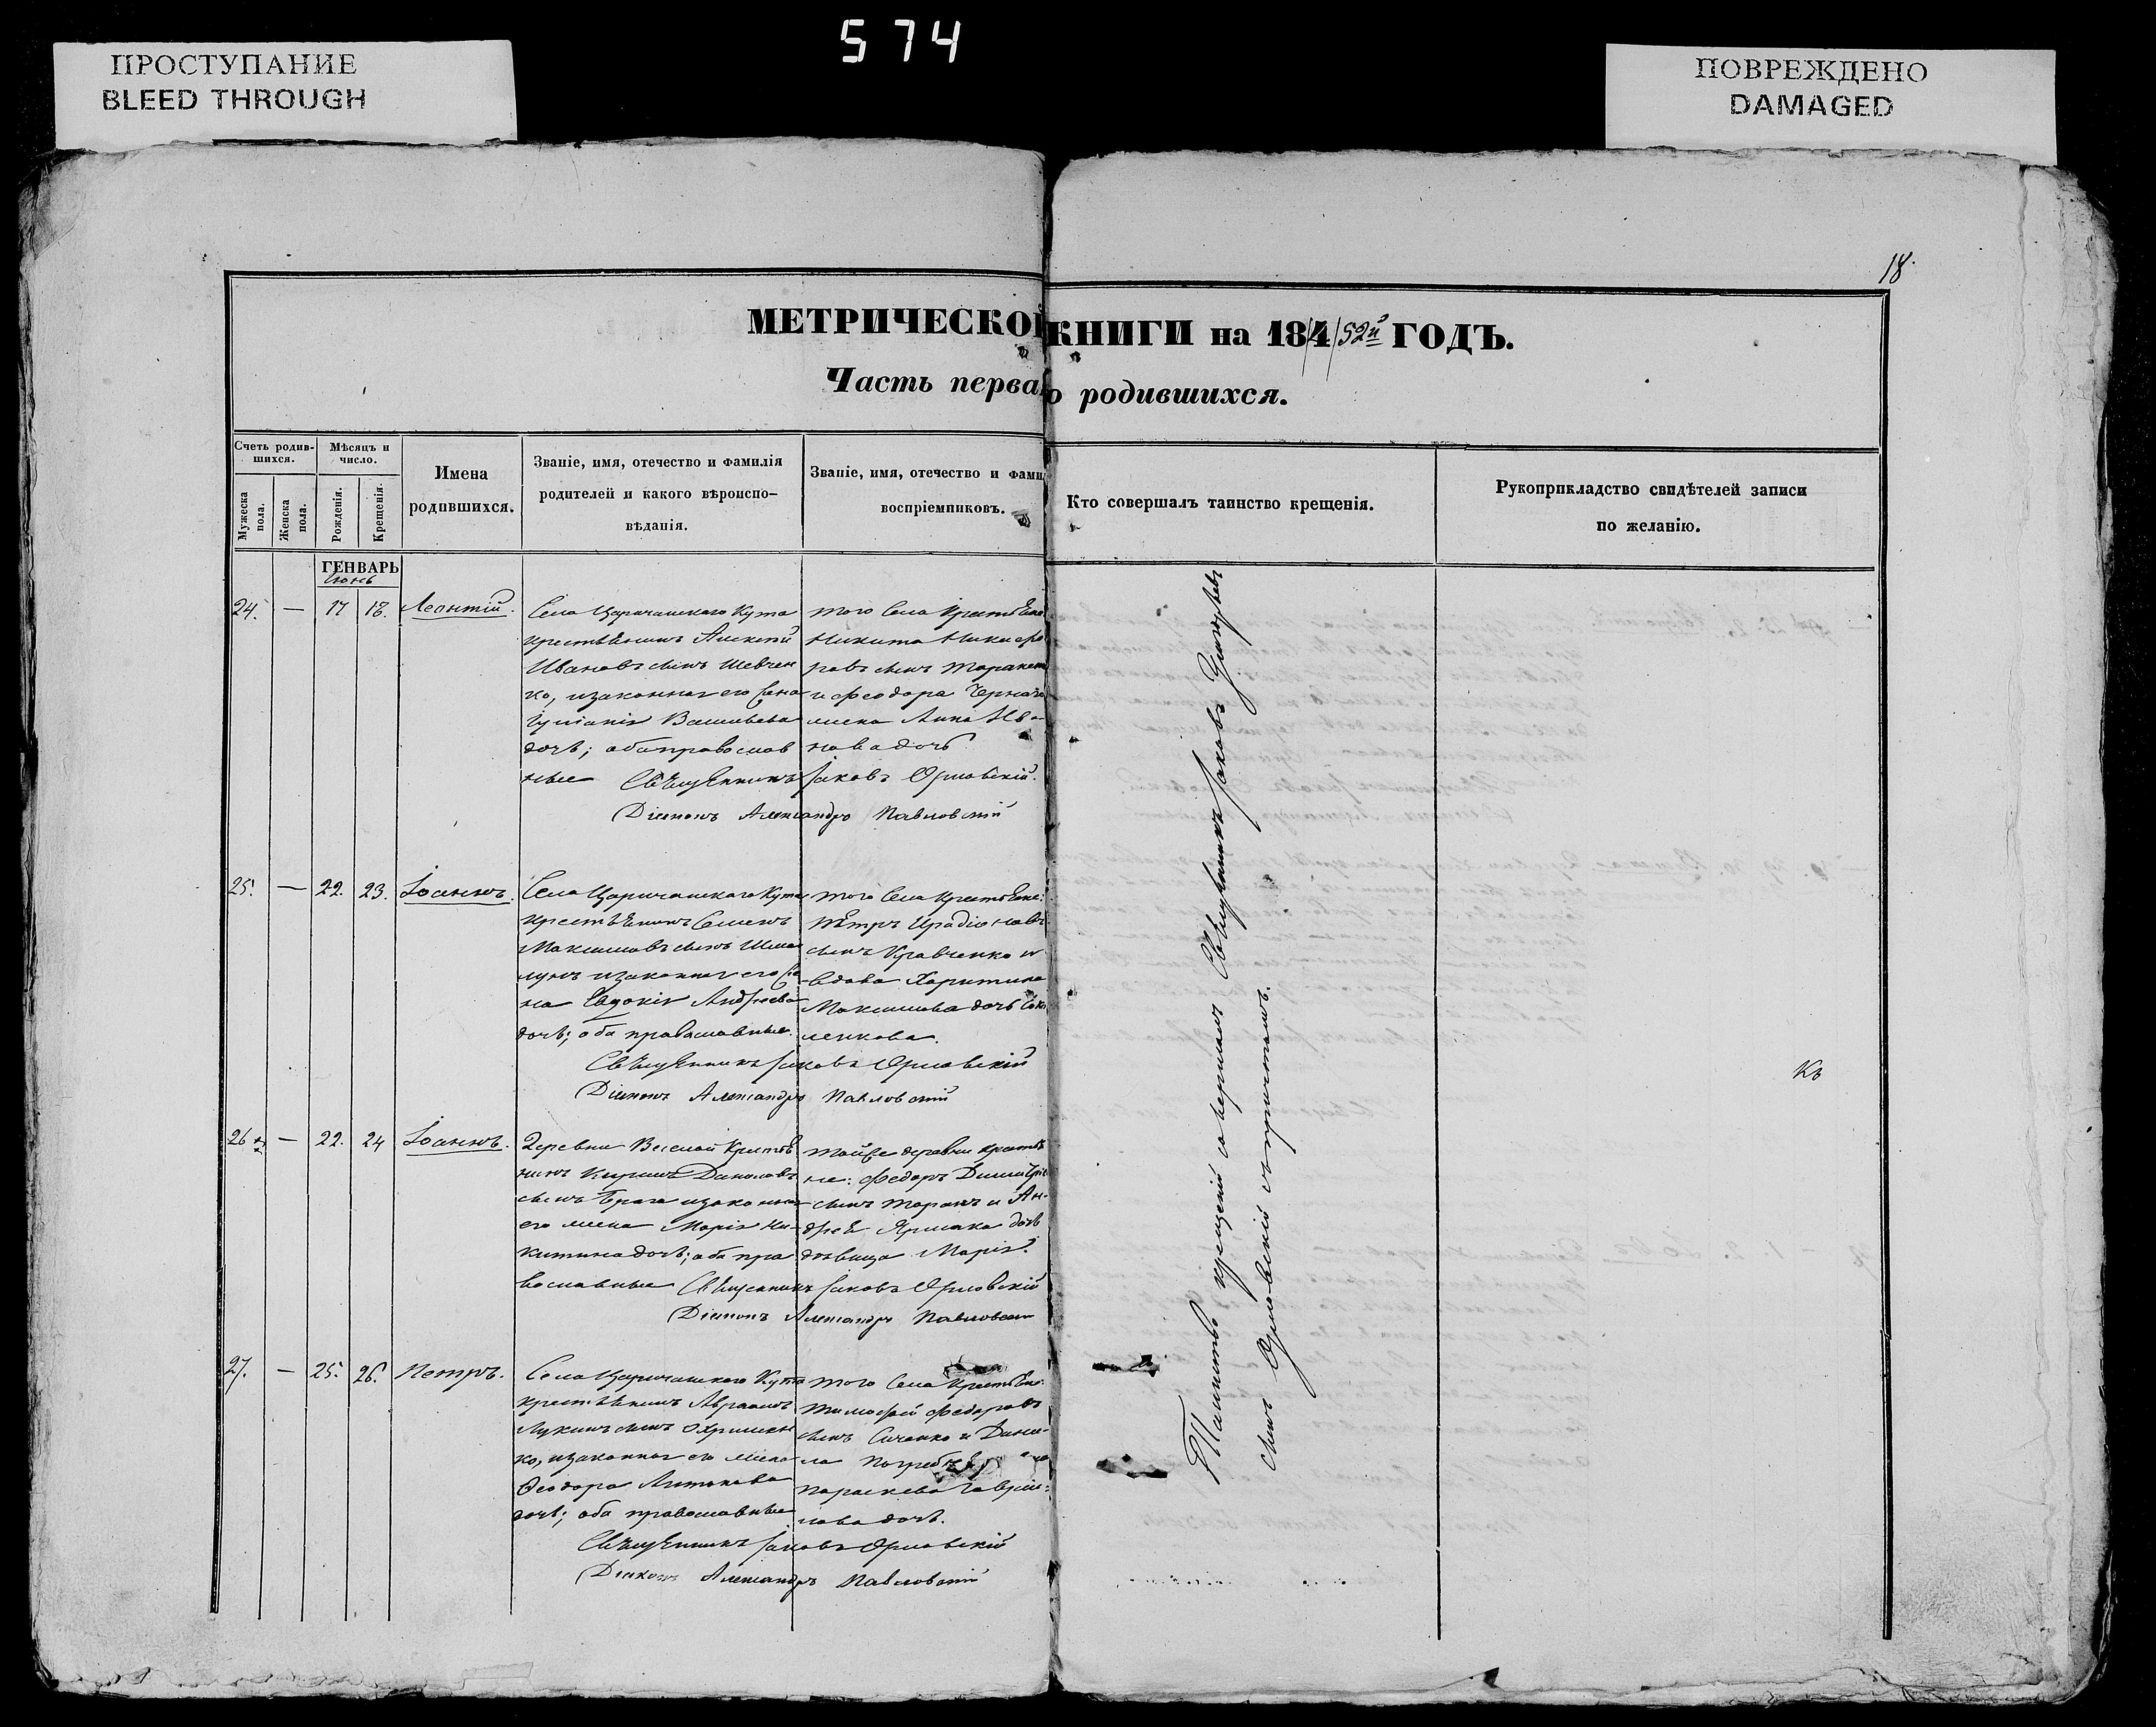 574
ПРОСТУПАНИЕ
BLEED THROUGH
ПОВРЕЖДЕНО
DAMAGED
18.
МЕТРИЧЕСКОЙ КНИГИ на 184 52й ГОДЪ.
Часть перва о родившихся.
Счетъ родив-
шихся.
Мужеска пола.
Женска пола.
Мѣсяцъ и
число.
Рожденія.
Крещенія.
Имена
родившихся.
Званіе, имя, отечество и фамилія
родителей и какого вѣроиспо-
вѣданія.
Званіе, имя, отечество и фами
воспріемниковъ.
Кто совершалъ таинство крещенія.
Рукоприкладство свидѣтелей записи
по желанію.
ГЕНВАРЬ
Іюнь
24. — 17 18. Леонтій.
Села Царичанскаго Кута
крестьянинъ Алексѣй
Ивановъ сынъ Шевчен
ко, и законная его жена
Іуліанія Васильева
дочь; оба православ
ные
того Села
Никита Никифо
ровъ сынъ
и Феодора
Анна Ива-
нова дочь
Священникъ Іаковъ Орловскій.
Діаконъ Александръ Павловскій
25. — 22. 23. Іоаннъ.
Села Царичанскаго Кута
крестьянинъ Семенъ
Максимовъ сынъ
и законная его же
на Евдокія Андреева
дочь; оба православные.
того Села
Петръ
сынъ Кравченко и
вдова Харитина
Максимова дочь
ленкова.
Священникъ Іаковъ Орловскій
Діаконъ Александръ Павловскій
26 — 22. 24 Іоаннъ.
Деревни Веселой крестья
нинъ Кирилъ Даниловъ
сынъ Брага и законная
его жена Марія Ни-
китина дочь; оба пра
вославные
тойже деревни крестья
не: Федоръ Димитрі
сынъ Таранъ и Ан-
дрея Ярмака дочь
дѣвица Марія.
Священникъ Іаковъ Орловскій
Діаконъ Александръ Павловскій
27. — 25. 26. Петръ.
Села Царичанскаго Кута
крестьянинъ Авраамъ
Лукинъ сынъ Охримен
ко, и законная его жена
Феодора Антонова
дочь; оба православные
того Села
Тимофей Федоровъ
сынъ и Дани-
ла
Параскева Гаврии-
лова дочь.
Священникъ Іаковъ Орловскій
Діаконъ Александръ Павловскій
Таинство крещенія совершалъ Священникъ Іаковъ Григорьевъ
сынъ Орловскій съ причтомъ.
Къ